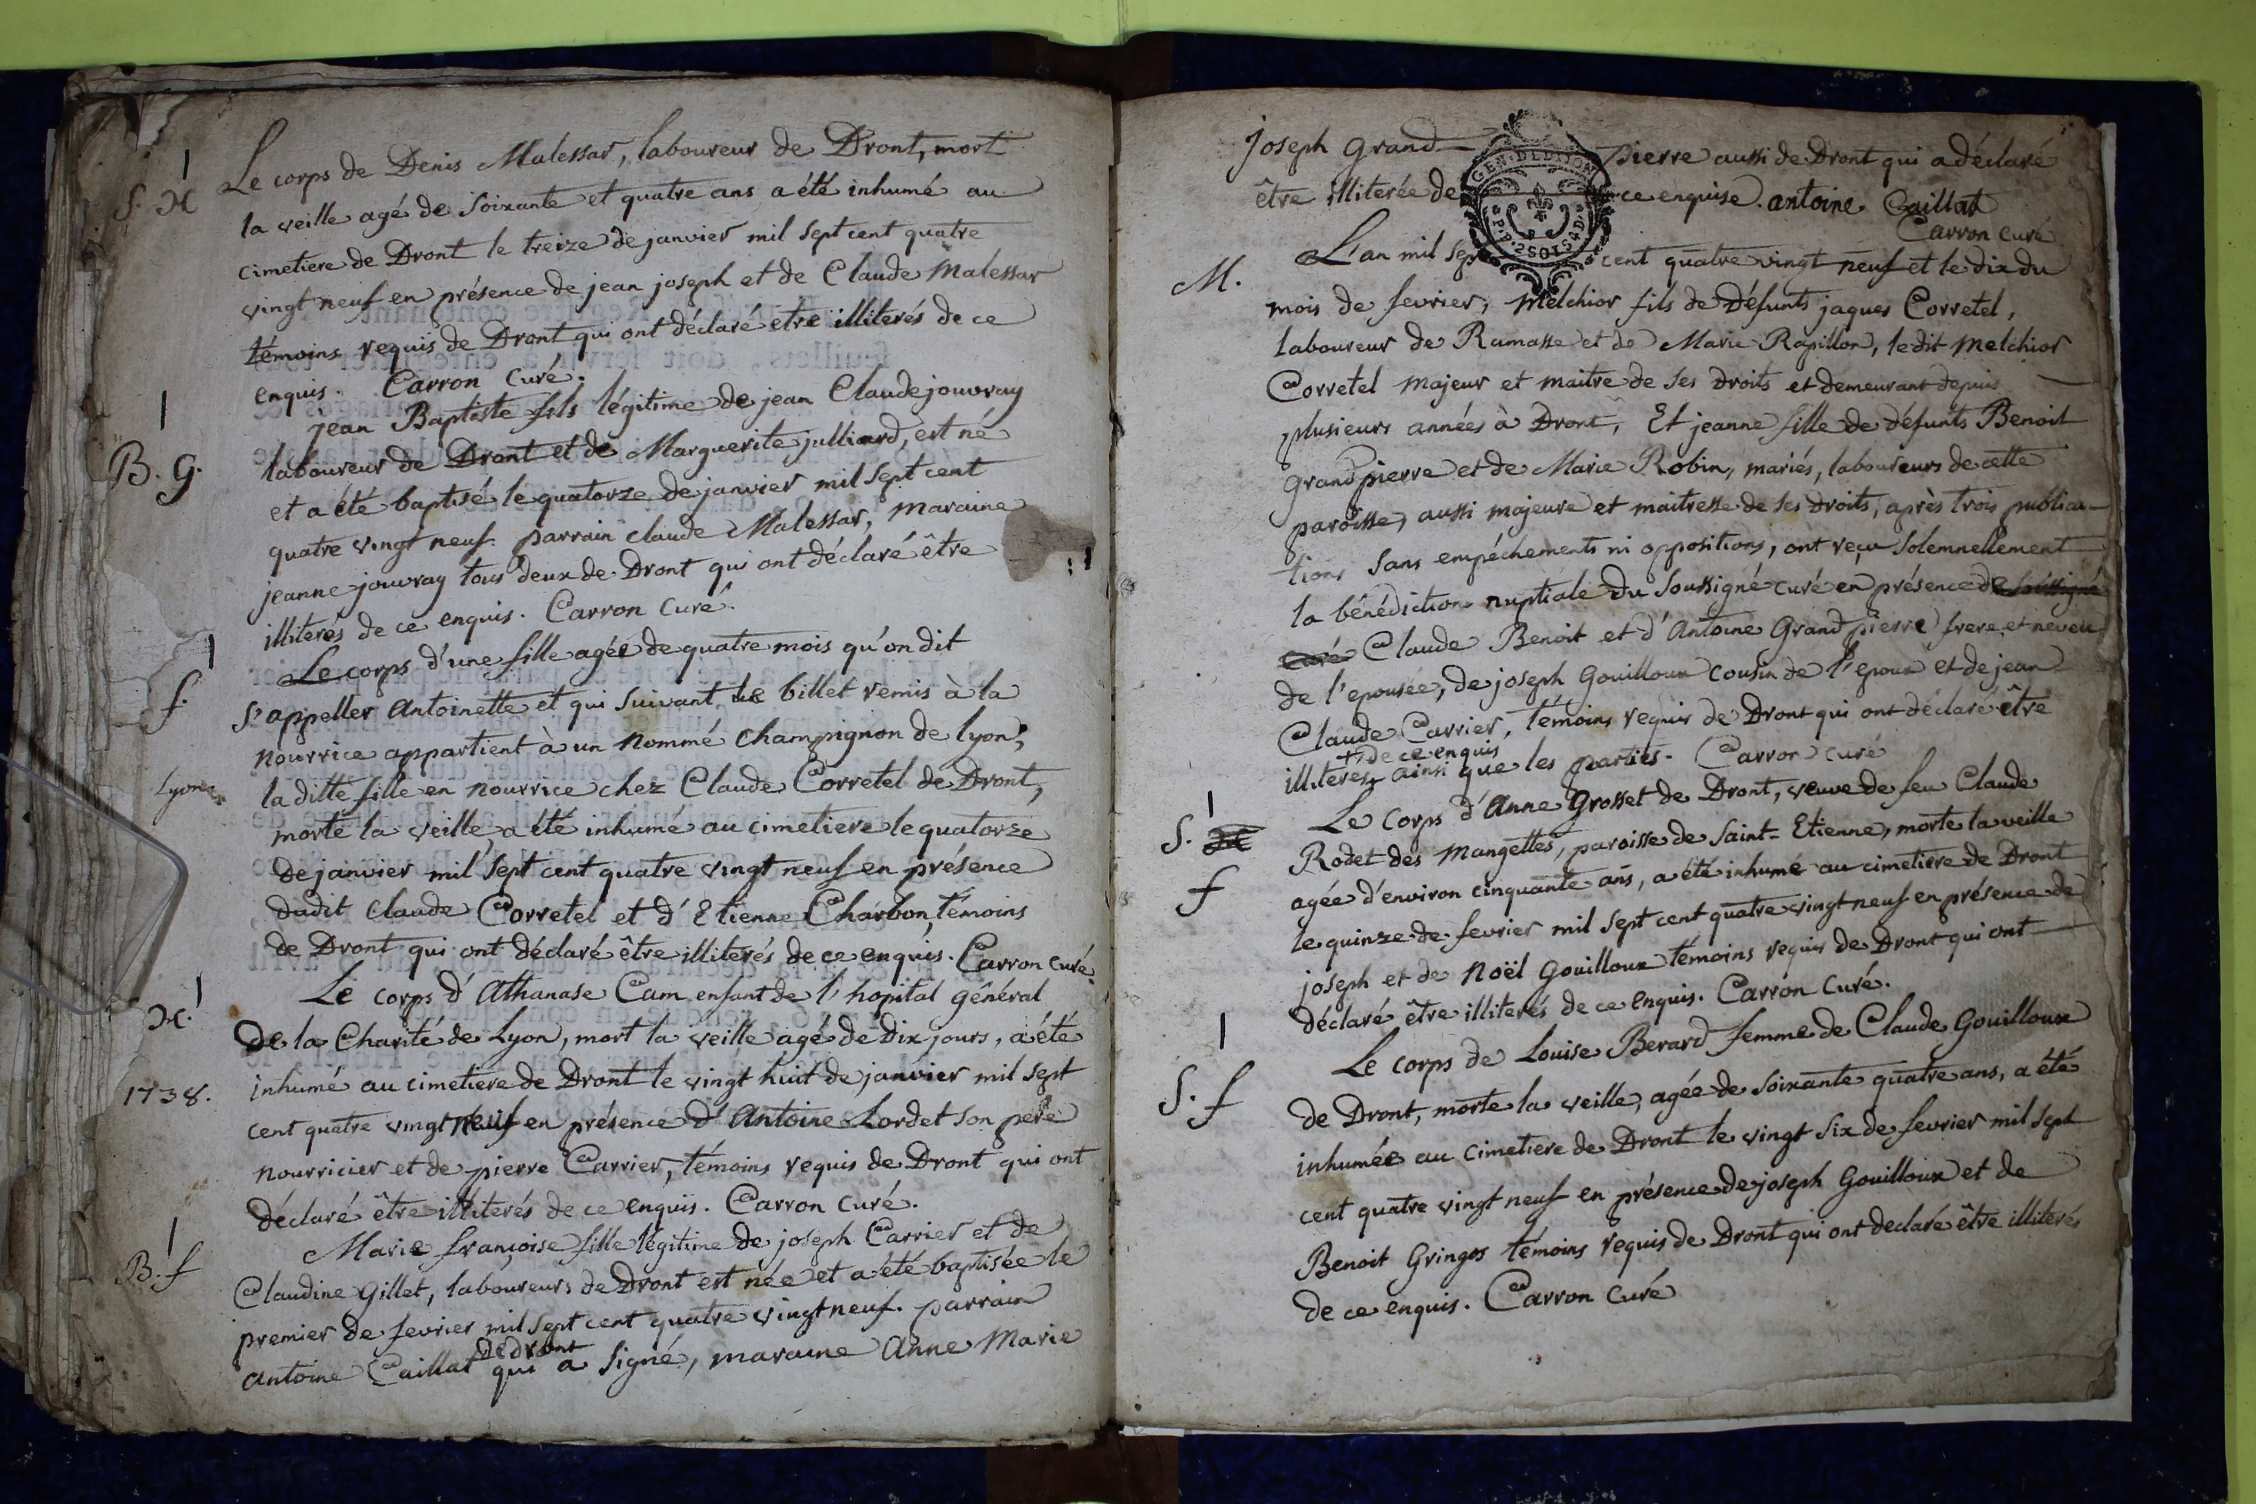 S. H
Le corps de Denis Malessar, laboureur de Dront, mort
la veille agé de soixante et quatre ans a été inhumé au
cimetiere de Dront le treize de janvier mil sept cent quatre
vingt neuf en présence de jean joseph et de Claude Malessar
témoins requis de Dront qui ont déclaré etre illiterés de ce
enquis. Carron curé.
B. G.
jean Baptiste fils légitime de jean Claude jouvray
laboureur de Dront et de Marguerite julliard, est né
et a été baptisé le quatorze de janvier mil sept cent
quatre vingt neuf. parrain claude Malessar, maraine
jeanne jouvray tous deux de Dront qui ont déclaré être
illiterés de ce enquis. Carron curé.
f.
Le corps d'une fille agée de quatre mois qu'on dit
s'appeller antoinette et qui suivant le billet remis à la
nourrice appartient à un nommé champignon de lyon,
Lyon
la ditte fille en nourrice chez Claude Corretel de Dront,
morte la veille, a été inhumé au cimetiere le quatorze
de janvier mil sept cent quatre vingt neuf en présence
dudit claude Corretel et d'Etienne Charbon, témoins
de Dront qui ont déclaré être illiterés de ce enquis. Carron curé
H.
Le corps d'Athanase Cam enfant de l'hopital général
de la Charité de Lyon, mort la veille agé de Dix jours, a été
1738.
inhumé au cimetiere de Dront le vingt huit de janvier mil sept
cent quatre vingt neuf en présence d'Antoine Lordet son pere
nourricier et de pierre Carrier, témoins requis de Dront qui ont
déclaré être illiterés de ce enquis. Carron curé.
B. f
Marie françoise fille légitime de joseph Carrier et de
Claudine Gillet, laboureurs de Dront est née et a été baptisée le
premier de fevrier mil sept cent quatre vingt neuf. parrain
de dront
antoine Caillat qui a signé, maraine Anne Marie
joseph Grand pierre aussi de Dront qui a déclaré
GEN. D.
être illiterée de ce enquise. antoine Caillat
Carron curé
M.
L'an mil sept cent quatre vingt neuf et le dix du
mois de fevrier, melchior fils de défunts jaques Corretel,
laboureur de Ramasse et de Marie Rapillon, ledit melchior
Corretel majeur et maitre de ses droits et demeurant depuis
plusieurs années à Dront, Et jeanne fille de défunts Benoit
Grand pierre et de Marie Robin, mariés, laboureurs de cette
paroisse, aussi majeure et maitresse de ses droits, après trois publica-
tions sans empéchements ni oppositions, ont reçu solemnellement
la bénédiction nuptiale du soussigné curé en présence de soussigné
curé Claude Benoit et d'Antoine Grand pierre frere et neveu
de l'epousée, de joseph Gouilloux cousin de l'epoux et de jean
Claude Carrier, témoins requis de Dront qui ont déclaré être
+ de ce enquis
illiterés ainsi que les parties. Carron curé
S. H
f
Le corps d'Anne Grosset de Dront, veuve de feu Claude
Rodet des mangettes, paroisse de saint-Etienne, morte la veille
agée d'environ cinquante ans, a été inhumé au cimetiere de Dront
le quinze de fevrier mil sept cent quatre vingt neuf en présence de
joseph et de noël Gouilloux témoins requis de Dront qui ont
déclaré être illiterés de ce enquis. Carron curé.
S. f
Le corps de Louise Berard femme de Claude Gouilloux
de Dront, morte la veille, agée de soixante quatre ans, a été
inhumée au cimetiere de Dront le vingt six de fevrier mil sept
cent quatre vingt neuf en présence de joseph Gouilloux et de
Benoit Gringos témoins requis de Dront qui ont declaré être illiterés
de ce enquis. Carron curé